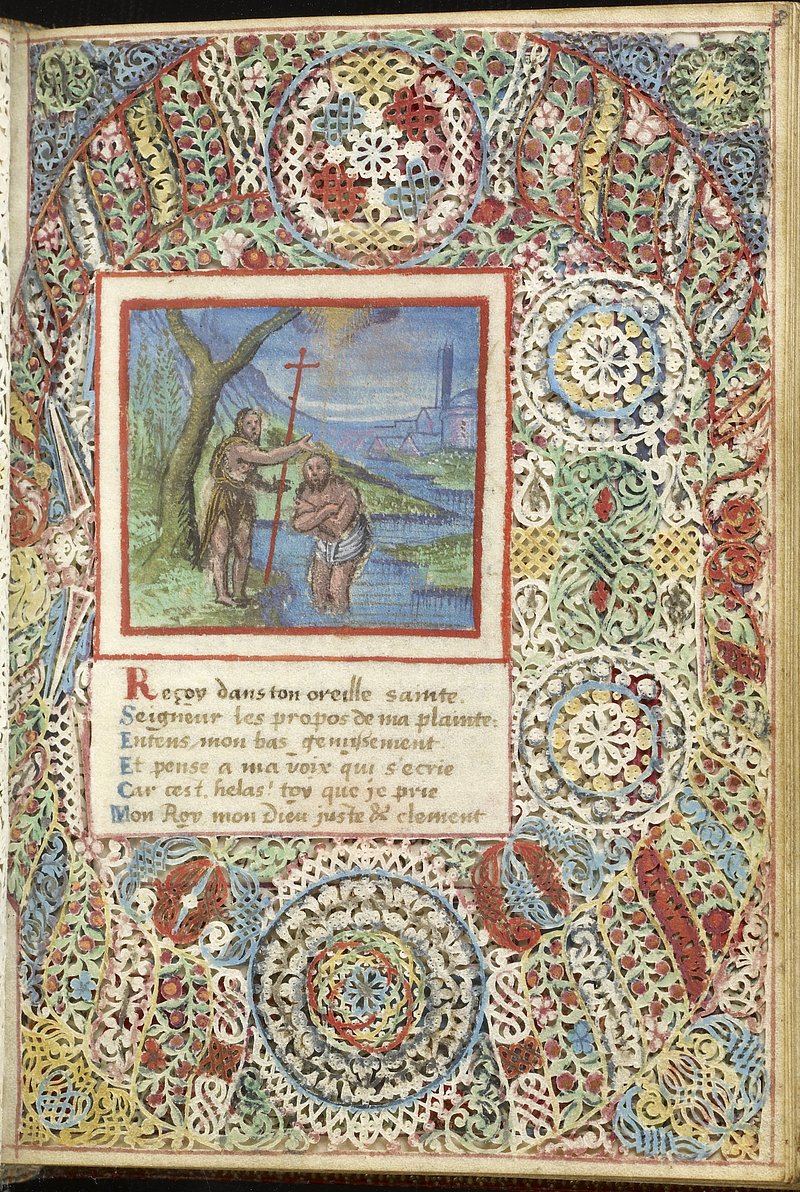 Reçoy dans ton oreille sainte.
Seigneur les propos de ma plainte:
Entens, mon bas gemissement
Et pense a ma voix qui s'ecrie
Car cest. helas! toy que je prie
Mon Roy mon Dieu juste & clement